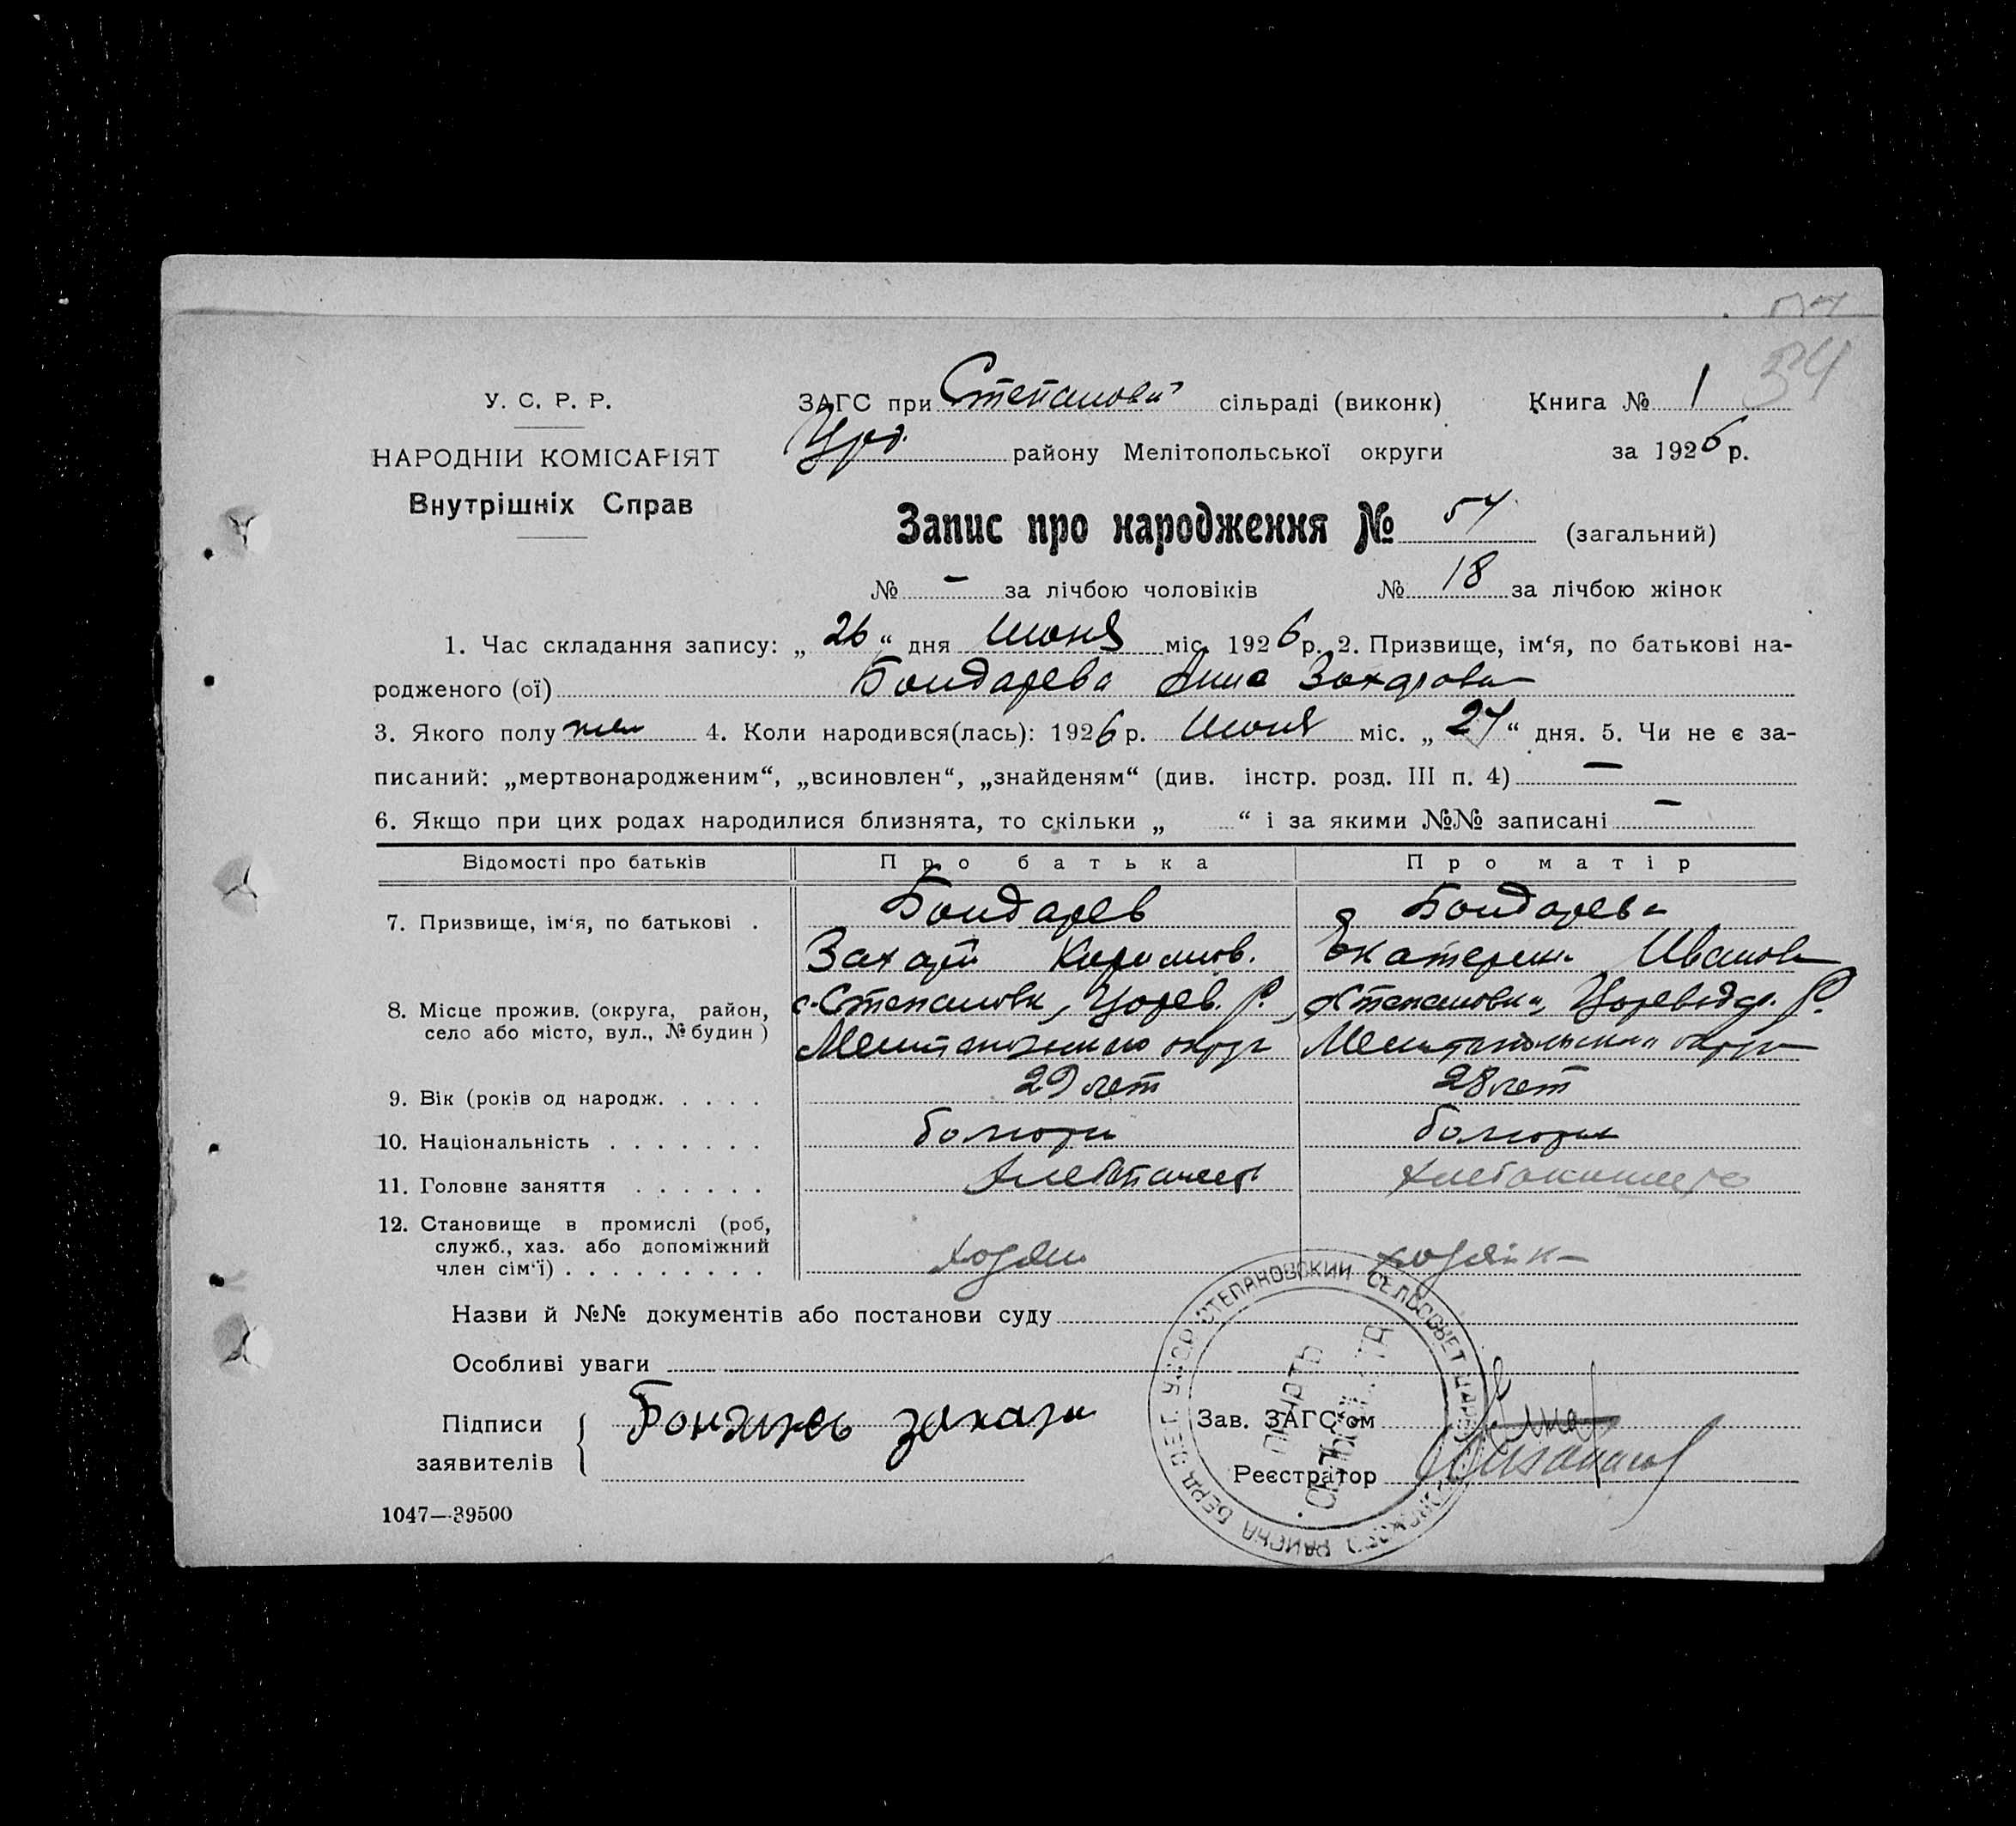 54
34
У. С. Р. Р.
НАРОДНІЙ КОМІСАРІЯТ
Внутрішніх Справ
ЗАГС при Степанови сільраді (виконк) Книга № 1
району Мелітопольської округи за 1926 р.
Запис про народження № 54 (загальний)
№ — за лічбою чоловіків № 18 за лічбою жінок
1. Час складання запису: „ 26 “ дня Июня міс. 1926 р. 2. Призвище, ім‘я, по батькові на-
родженого (ої) Бондарева Анна Захарова
3. Якого полу жен 4. Коли народився(лась): 1926 р. Июня міс. „ 24 “ дня. 5. Чи не є за-
писаний: „мертвонародженим“, „всиновлен“, „знайденям“ (див. інстр. розд. III п. 4) —
6. Якщо при цих родах народилися близнята, то скільки „ “ і за якими №№ записані —
Відомості про батьків Про батька Про матір
7. Призвище, ім‘я, по батькові . Бондарев Бондарева
Захарий Екатерина Иванов
8. Місце прожив. (округа, район, с. Степановка, Царев. Р. Степановка, Цареводар. Р.
село або місто, вул., № будин) Мелитопольского округа Мелитопольскаго округа
9. Вік (років од народж. . . . . 29 лет 28 лет
10. Національність . . . . . . . болгори болгори
11. Головне заняття . . . . . . хлебопашест
12. Становище в промислі (роб,
служб., хаз. або допоміжний
член сім‘ї) . . . . . . . . . хозяин хозяйка
Назви й №№ документів або постанови суду
Особливі уваги
Підписи
заявителів
Зав. ЗАГС‘ом
Реєстратор
1047—39500
СТЕПАНОВСКИЙ СЕЛЬСОВЕТ РАЙОНА УССР